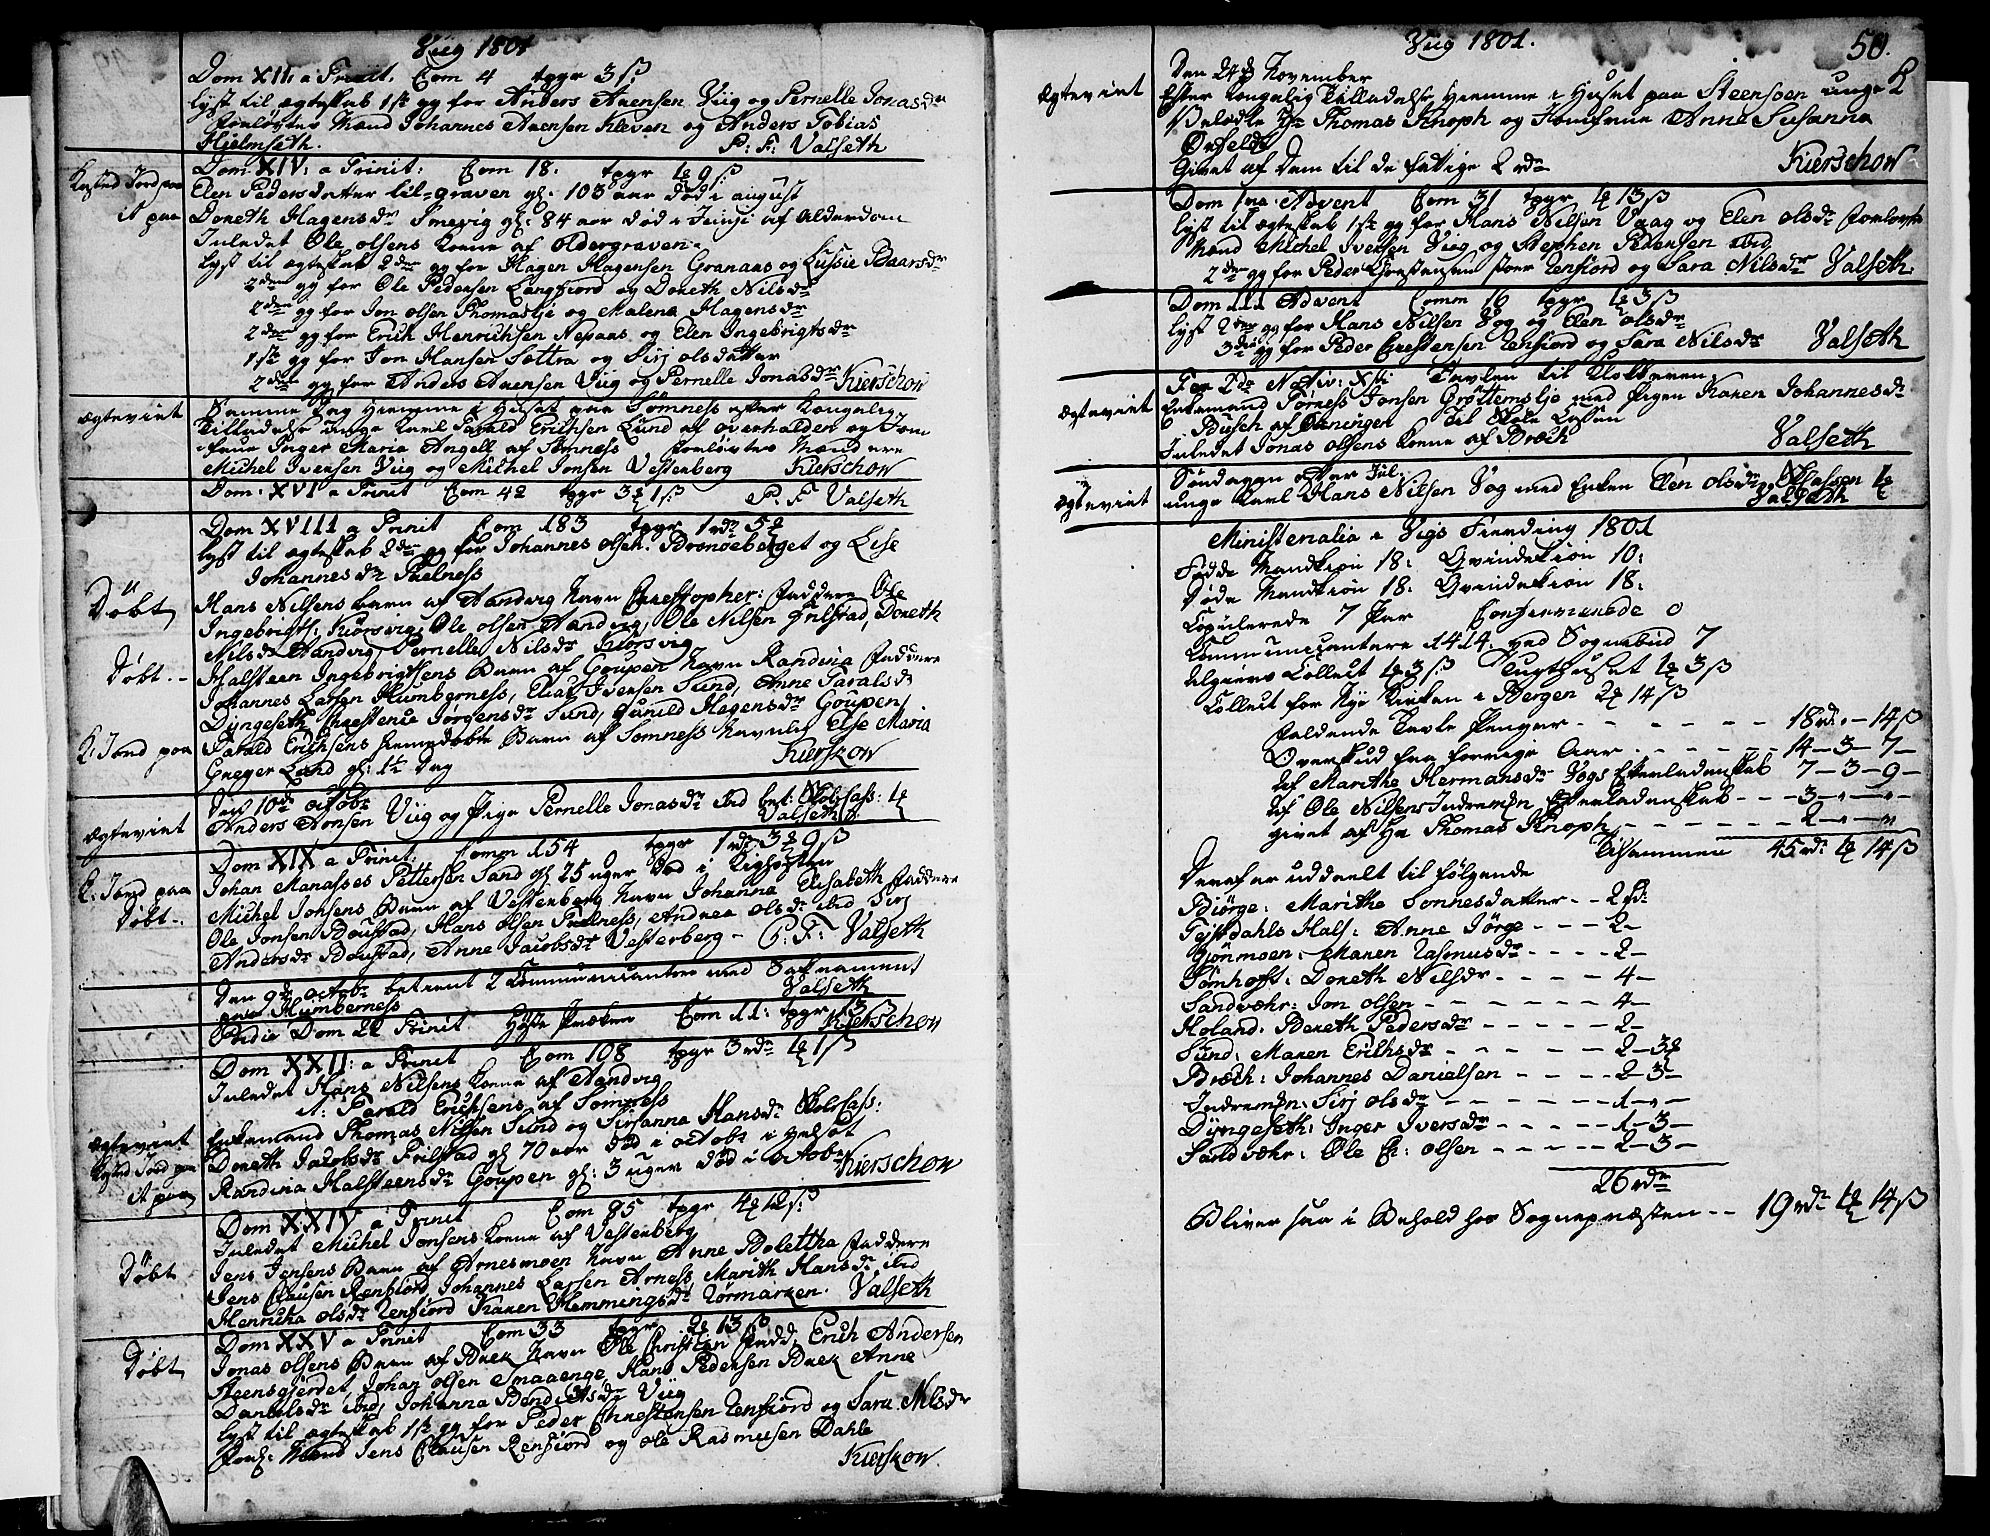 Viig 1801
Dom XII: a Trinit. Com 4 tpgr 3 ß
lyst til ægteskab 1ste gg for Anders Arensen Viig og Pernelle Jonasdr
forlovter Mænd Johannes Arensen Kleven og Anders Tobias
Hielmseth. P: F: Valseth
Kasted Jord paa
Dom XIV: a Trinit: Com 18. tpgr 9 ß
Elen Pedersdatter lil-graven gl: 103 aar død i august
it paa
Doreth Hagensdr Smevig gl: 84 aar død i Junji af Alderdom
Inledet Ole olsens Kone af Oldergraven
lyst til ægteskab 2den gg for Hagen Hagensen Granaas og Lussie Baarsdr
2den gg for Ole Pedersen Langfiord og Doreth Nilsdr
2den gg for Jon olsen Thomaslje og Malena Hagensdr
2den gg for Erich Henrichsen Nepaas og Elen Ingebrigtsdr
1ste gg for Jon Hansen Sættra og Sirj olsdatter
2den gg for Anders Arensen Viig og Pernelle Jonasdr Kierschow
ægteviet
Samme Dag Hiemme i Huset paa Sömness efter Kongelig
Tilladelse unge Karl Parald Erichsen Lund af overhalden og Jom
frue Inger Maria Angell af Sömness forlovter Mænd ere
Michel Iversen Viig og Michel Jonsen Vestenberg Kierschow
Dom: XVI a Trinit Com 42 tpgr 3 1 ß P: F Valseth
Dom XVIII a Trinit Com 183 tpgr 1 rdr 5
lyst til ægteskab 2den gg for Johannes olsen Bronöeberget og Lise
Johannesdr Puelness
Döbt
Hans Nilsens barn af Aandvig Navn Christopher: faddere Ole
Ingebrigts: Kiörsvig, Ole olsen Aandvig, Ole Nilsen Grilstad, Doreth
Nilsdr Aandvig, Pernelle Nilsdr Kiörsvig
Döbt.-
Halsteen Ingebrigtsens Barn af Goupen Navn Randina faddere
Johannes Larsen Humberness, Elias Iversen Sund, Anne Taralsdr
Dyngeseth Chrestence Jørgensdr Sund, Gunild Hagensdr Goupen
K: Jord paa
Parald Erichsens hiemedöbte Barn af Sömness Navnlig Else Maria
Greger Lund gl: 1½ Dag Kierskow
ægteviet
Den 10de octobr
Anders Arnsen Viig og Pige Pernelle Jonasdr ibid bet: Skolecass: 1
Valseth
Dom XIX a Trinit: Comm 154 tpgr 1 rdr 3 9 ß
K: Jord paa
Johan Manasses Pettersen Sand gl: 25 uger Död i
Döbt.
Michel Johsens Barn af Vestenberg Navn Johanna Elisabeth faddere
Ole Jonsen Boustad, Hans olsen Puelness, Andrea olsdr ibid Sirj
Andersdr Boustad, Anne Jacobsdr Vesterberg - P: F: Valseth
Den 9de octobr betient 2 Communicantere med Sakrament
paa Humberness Valseth
Pridie Dom 22 Trinit Com 11: tpgr 13 ß
Kierschow
Dom XXII: a Trinit Com 108 tpgr 3 rdr 1 ß
Inledet Hans Nilsens Kone af Aandvig
it: Parald Erichsens af Sömness
ægteviet
Enkemand Thomas Nilsen Sund og Susanna Hansdr Skolecass:
Kasted Jord paa
Doreth Jacobsdr Frilstad gl 70 aar Död i octobr i
it paa
Randina Halsteensdr Goupen gl: 3 uger död i octobr Kierschow
Dom XXIV a Trinit Com 85 tpgr 4 12 ß
Inledet Michel Jonsens Kone af Vestenberg
Döbt
Jens Jensens Barn af Arnesmoen Navn Anne Bolettha faddere
Jens Clausen Renfiord, Johannes Larsen Arness, Marith Hansdr ibid
Henricha olsdr Renfiord Karen Hemmingsdr Tormarken. Valseth
Dom XXV a Trinit Com 33 tpgr 2 13 ß
Döbt
Jonas olsens Barn af Bæk Navn Ole Christian fadd: Erich Andersen
Steensgjerdet, Johan olsen Smaaenge, Hans Pedersen Bæk Anne
Danielsdr ibid, Johanna Bendictsdr Viig
lyst til ægteskab 1ste gg for Peder Chrestensen Renfiord og Sara Nilsdr
forl: Mænd Jens Clausen Renfiord og Ole Rasmusen Dahle
Kierskow
Viig 1801. 50.
ægteviet
Den 24de November
Efter Kongelig Tilladelse Hiemme i Huset paa Steensoen unge K
Hr Thomas Knoph og Jomfrue Anne Susanna
Givet af Dem til de fattige 2 rdr Kierschow
Dom 1ma Advent Com 31 tpgr 13 ß
lyst til ægteskab 1ste gg for Hans Nilsen Vaag og Elen olsdr forlovte
Mænd Michel Iversen Viig og Stephen Pedersen ibid
2den gg for Peder Chrestensen Renfiord og Sara Nilsdr Valseth
Dom III Advent Comm 16 tpgr 3 ß
lyst 2den gg for Hans Nilsen Vog og Elen olsdr
3die gg for Peder Crestensen Renfiord og Sara Nilsdr Valseth
Fer 2da Nativ: Xsti Tavlen til Klokkeren.
ægteviet
Enkemand Törress Jonsen Grøttemslje med Pigen Karen Johannesdr
Busch af til Skole Cassen
Inledet Jonas olsens Kone af Broch Valseth
Söndagen efter Jul.
ægteviet
unge Karl Hans Nilsen Vog med Enken Elen olsdr Skolecassen 1
Valseth
Ministerialia i Vigs Fierding 1801
Födde Mandkiön 18: Qvindekiön 10:
Döde Mandkiön 18: Qvindekiön 18:
Copulerede 7 Par Confirmerede 0
Communicantere 1414 ved Sognebud 7
Collect 3 ß Tugthuset 3 ß
Collect for Nye Kirken i Bergen 2 14 ß
faldende Tavle Penger - - - - 18 rdr - 14 ß
Overskud fra forrige Aar - - - - 14 - 3 - 7 -
af Marithe Hermansdr Vogs Efterladenskab 7 - 3 - 9 -
af Ole Nilsens Indremsn Efterladenskab - - - 3 - " - " -
givet af Hr Thomas Knoph - - - - 2 - " - "
Tilsammen 45 rdr 14 ß
Deraf er uddeelt til fölgende
Biörge: Marithe Tonnesdatter - - 2 rdr
Tejsdahls Hals: Anne Jörge - - - 2 -
Giönmoen: Maren Rasmusdr - - - 2 -
Tömhoft: Doreth Nilsdr - - - - 4 -
Sandvær: Jon olsen - - - - - 4 -
Holand: Bereth Pedersdr - - - - 2 -
Sund: Maren Erichsdr - - - - 2 - 3
Broch: Johannes Danielsen - - - - 2 - 3 -
Indremsn: Sirj olsdr - - - - 1 - " -
Dyngeseth: Inger Iversdr - - - - 1 - 3 -
Sandvær: Ole Ch: olsen - - - - 2 - 3 -
26 rdr
Bliver saa i Behold hos Sognepræsten - - 19 rdr 14 ß